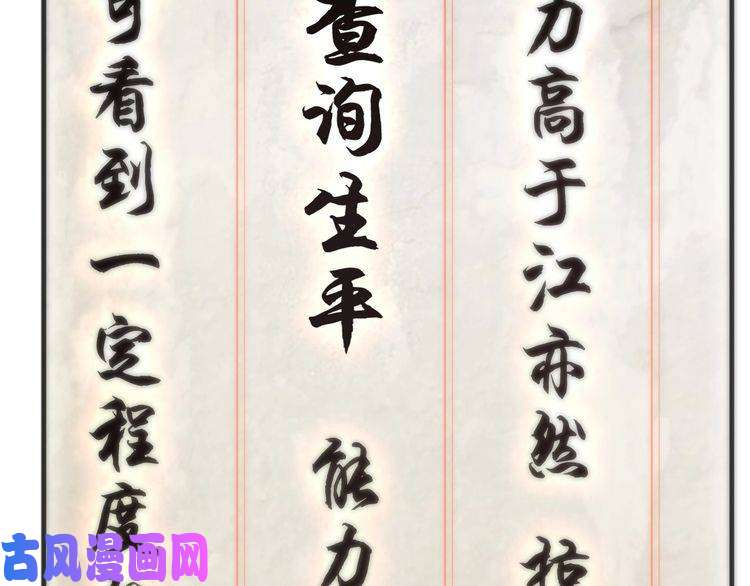 力高于江亦然
查询生平 能力
可看到一定程度
古风漫画网